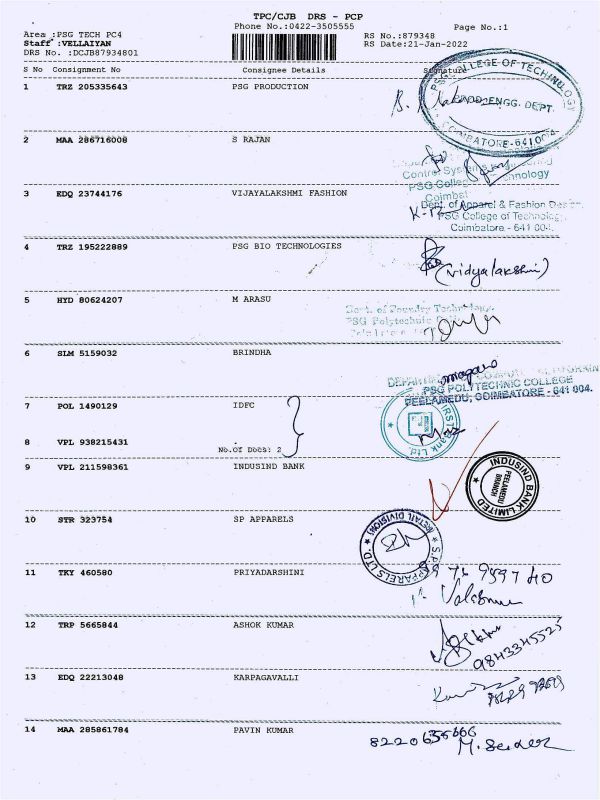 TPC/CJB DRS - PCP
Phone No.:0422-3505555
Page No.:1
Area :PSG TECH PC4
RS No.:879348
Staff :VELLAIYAN
RS Date:21-Jan-2022
DRS No. :DCJB87934801
S No Consignment No Consignee Details Signature
1 TRZ 205335643 PSG PRODUCTION
PSG COLLEGE OF TECHNOLOGY
PROD. ENGG. DEPT.
COIMBATORE - 641 004.
2 MAA 286716008 S RAJAN
Control Systems Engineering
PSG College Technology
Coimbat
3 EDQ 23744176 VIJAYALAKSHMI FASHION
Dept. of Apparel & Fashion Design
PSG College of Technology
Coimbatore - 641 004.
4 TRZ 195222889 PSG BIO TECHNOLOGIES
(vidyalakshmi)
5 HYD 80624207 M ARASU
Dept. of Foundry Technology,
PSG Polytechnic
6 SLM 5159032 BRINDHA
PSG POLYTECHNIC COLLEGE
PEELAMEDU, COIMBATORE - 641 004.
7 POL 1490129 IDFC
FIRST Bank Ltd.
8 VPL 938215431
No.Of Docs: 2
9 VPL 211598361 INDUSIND BANK
INDUSIND BANK LIMITED
PEELAMEDU
BRANCH
10 STR 323754 SP APPARELS
S.P. APPARELS LTD.
(RETAIL DIVISION)
11 TKY 460580 PRIYADARSHINI
12 TRP 5665844 ASHOK KUMAR
9843345525
13 EDQ 22213048 KARPAGAVALLI
14 MAA 285861784 PAVIN KUMAR